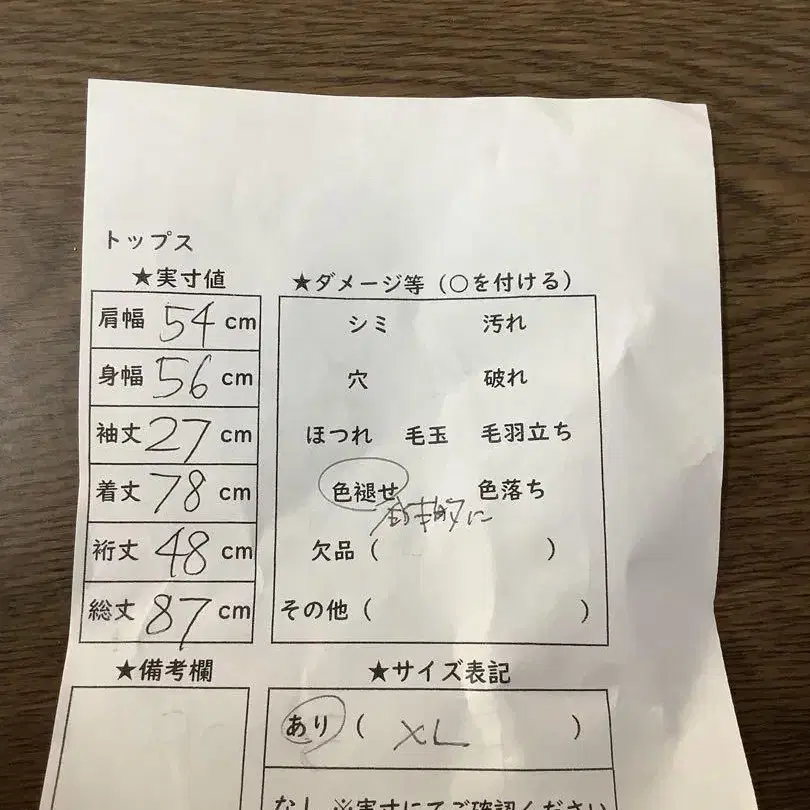 トップス
★実寸値
肩幅 54 cm
身幅 56 cm
袖丈 27 cm
着丈 78 cm
裄丈 48 cm
総丈 87 cm
★ダメージ等（○を付ける）
シミ 汚れ
穴 破れ
ほつれ 毛玉 毛羽立ち
色褪せ 色落ち
欠品（ ）
その他（ ）
★備考欄
★サイズ表記
あり（ XL ）
なし ※実寸にてご確認ください